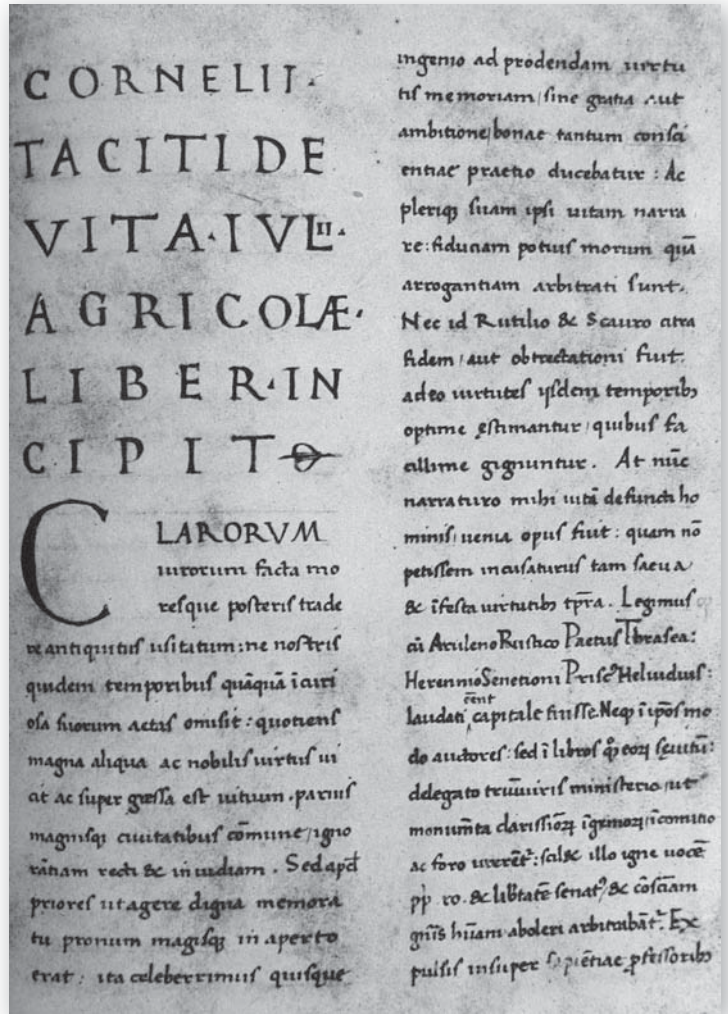 CORNELII·
TACITI DE
VITA·IVLII·
AGRICOLÆ·
LIBER·IN
CIPIT
CLARORVM
uirorum facta mo
resque posteris trade
re antiquitus usitatum: ne nostris
quidem temporibus quāquā īcuri
osa suorum aetas omisit: quotiens
magna aliqua ac nobilis uirtus ui
cit ac super gressa est uitium. paruis
magnisq; ciuitatibus cōmune, igno
rātiam recti & inuidiam. Sed apđ
priores ut agere digna memora
tu pronum magisq; in aperto
erat: ita celeberrimus quisque
ingenio ad prodendam uirtu
tis memoriam, sine gratia aut
ambitione, bonae tantum consci
entiae praetio ducebatur: Ac
pleriq; suam ipsi uitam narra
re: fiduciam potius morum quā
arrogantiam arbitrati sunt.
Nec id Rutilio & Scauro citra
fidem, aut obtrectationi fuit.
adeo uirtutes ijsdem temporib;
optime ęstimantur, quibus fa
cillime gignuntur. At nūc
narraturo mihi uitā defuncti ho
minis, uenia opus fuit: quam nō
petissem incusaturus tam saeua
& īfesta uirtutib; tp̄ra. Legimus
cū Aruleno Rustico Paetus Thrasea:
Herennio Senetioni Prisc⁹ Heluidius:
laudati cēnt capitale fuisse. Neq; ī ip̄os mo
do auctores: sed ī libros q̨ eoꝝ sęuitū:
delegato triūuiris ministerio, ut
monumīta clarissīoꝝ īgenioꝝ, ī comitio
ac foro urerēt᷑: scił& illo igne uocē
pp̄ ro. & lib̄tatē senat⁹, & cōsciam
gn̄is hūam aboleri arbitrabāt᷑. Ex
pulsis insuper sapiētiae ꝓfessorib;